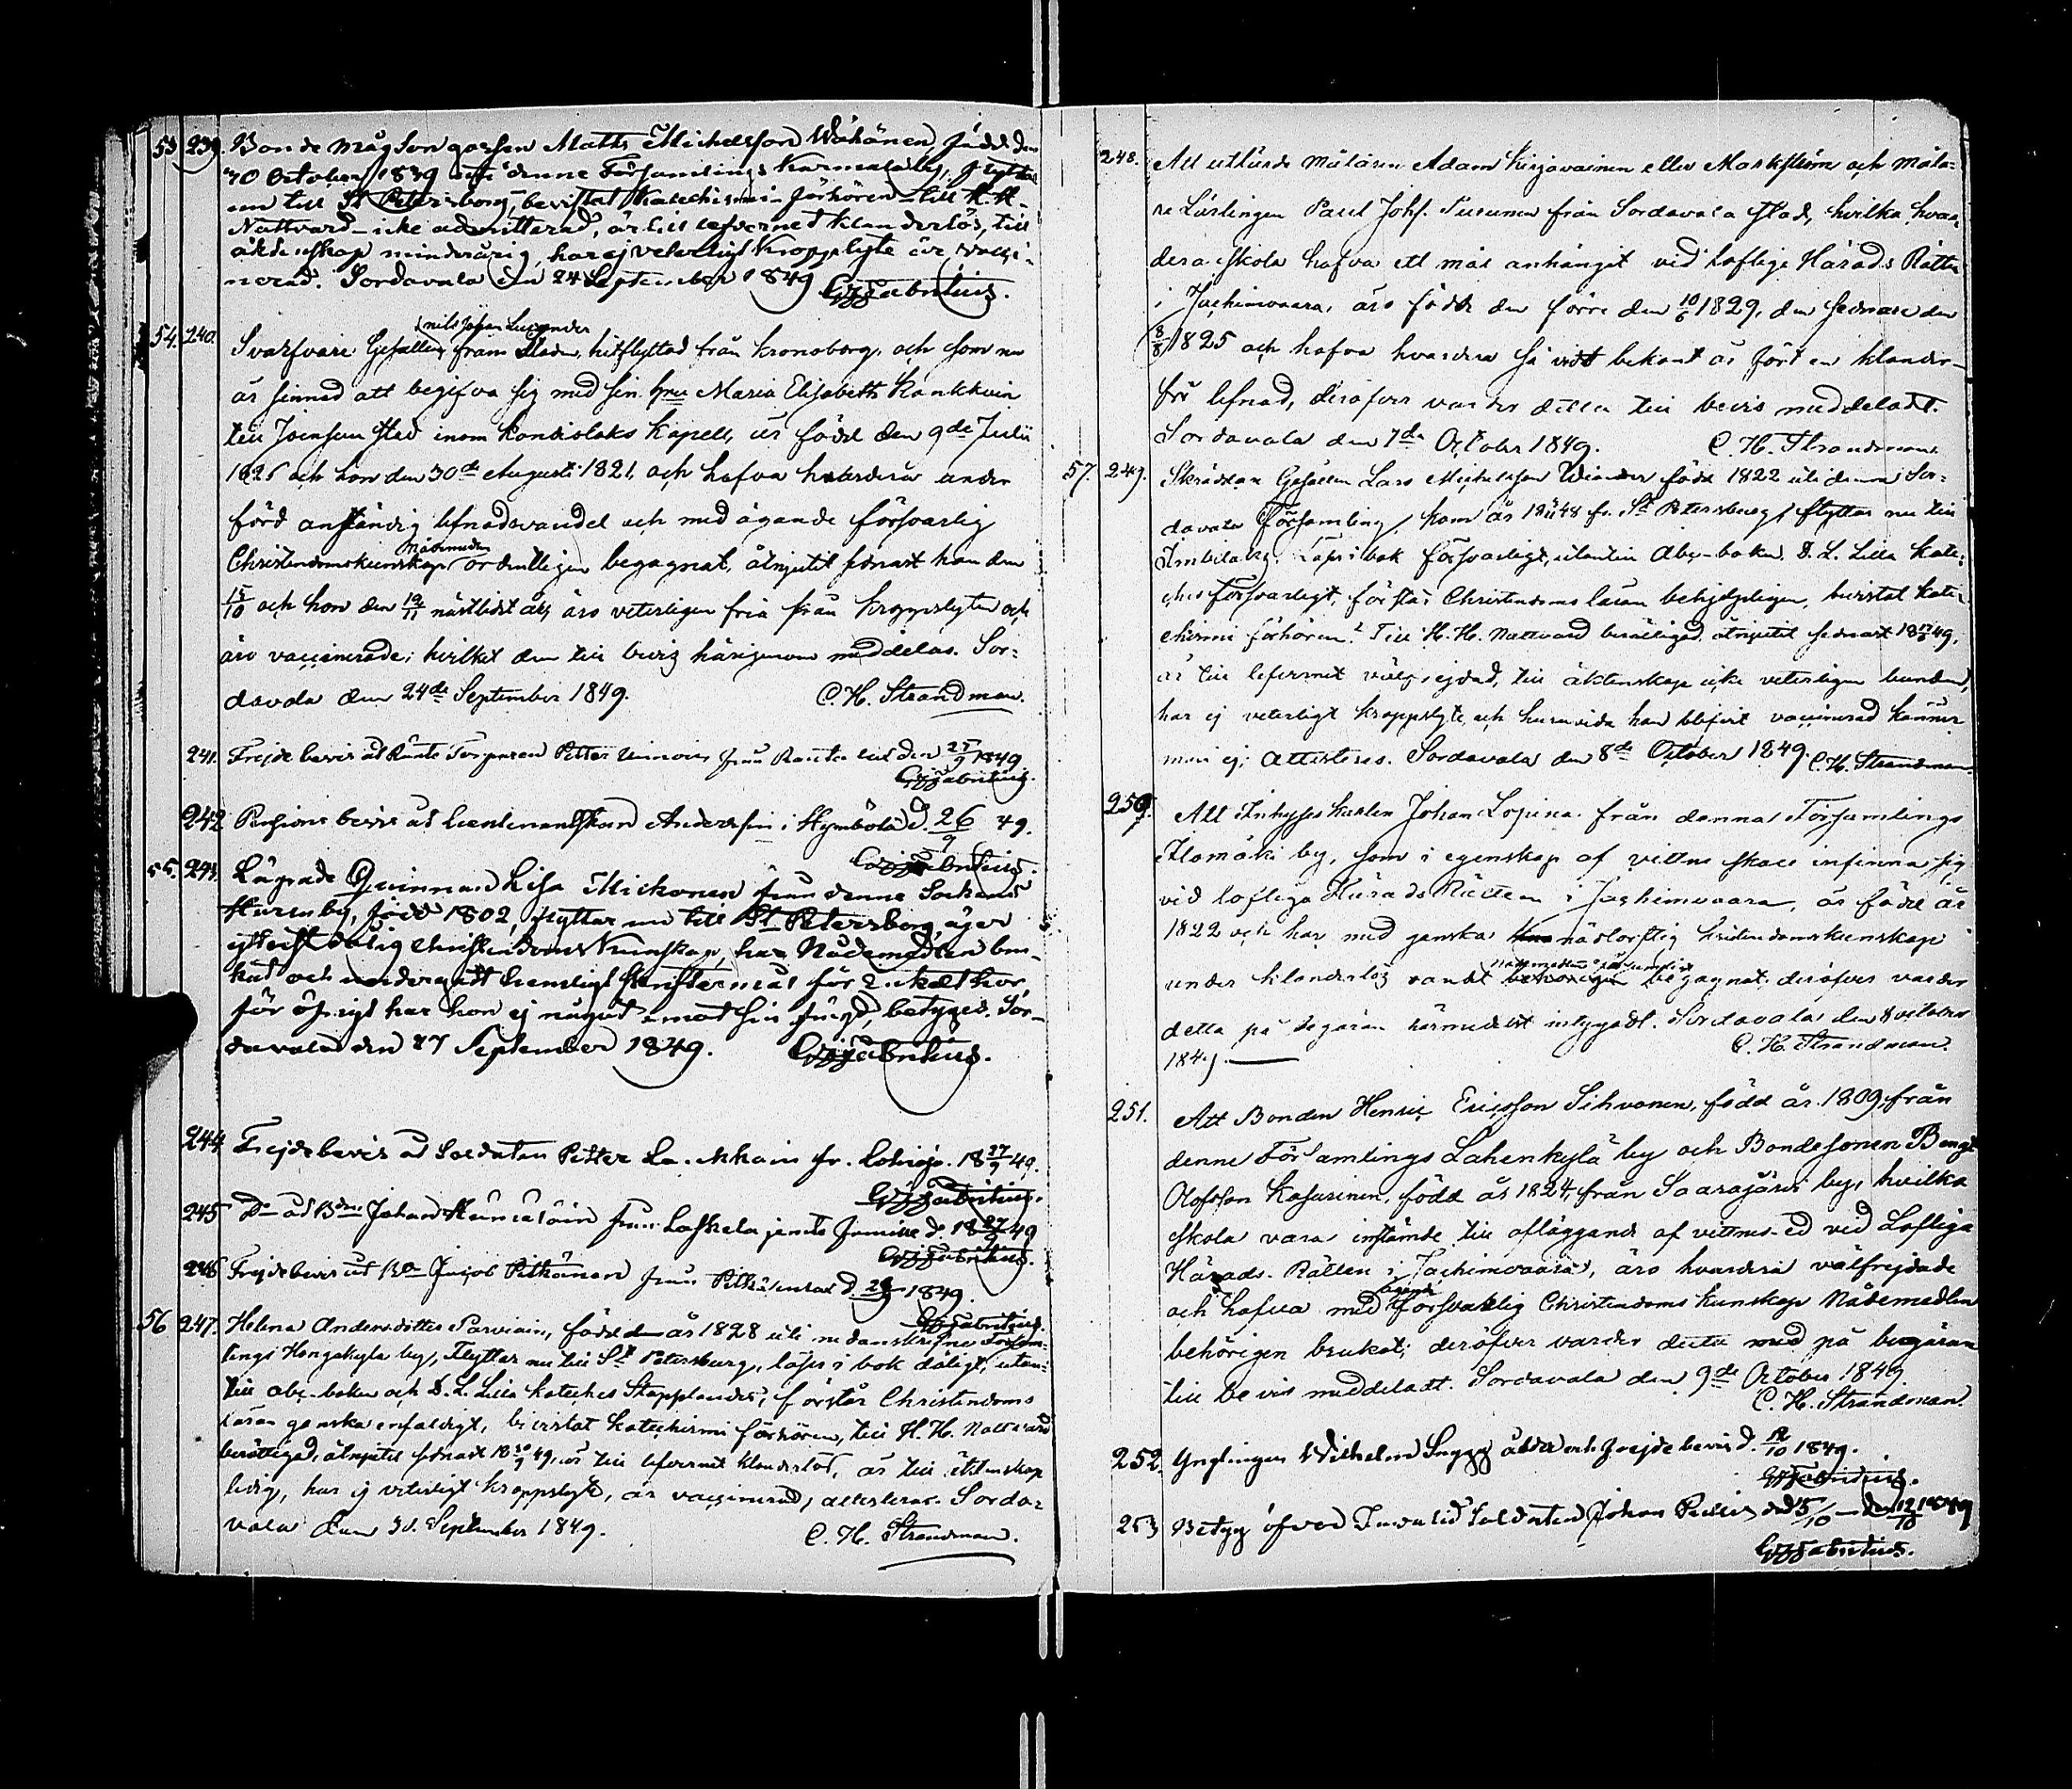 53. 239. Bonde mågson gossen Matts Michelsson Wäkönen, född den
30 October 1839 uti denne Församlings Karmala by, flyttar
nu till St Petersborg, bevistat Katechismi-förhören till H. H.
Nattvard icke admitterad, är till lefvernet klanderlös, till
äktenskap minderårig, har ej veterligt kroppslyte är vacci-
nerad. Sordavala den 24 September 1849
54. 240. Svarfvare Gesällen Nils Johan Lucander från Staden, hitflyttad från Kronoborg, och som nu
är sinnad att begifva sig med sin hru Maria Elisabeth Kankkuin
till Joensuu stad inom Kondiolaks Kapell, är född den 9de Julii
1826 och hon den 30de Augusti 1821, och hafva hvardera under
förd anständig lefnadsvandel och med ägande försvarlig
Christendomskunskap Nådemedlen ordentligen begagnat, åtnjutit senast han den
15/10 och hon den 19/11 nästlidet år, äro veterligen fria från kroppslyten och
äro vaccinerade; hvilket dem till bevis härigenom meddelas. Sor-
davala den 24de September 1849. C. H. Strandman.
241. Frejdebevis åt Petter från den 25/9 1849
242 Pensions bevis åt Lieutenantskan Andersin i Hymbölä d. 26/9 49.
55. 243. Lägrade Qvinnan Lisa Mickonen från denne Sockens
by, född 1802, flyttar nu till St Petersborg, äger
ytterst dålig Christendoms kunskap, har Nådemedlen bru-
kat och undergått hemligt skriftermål för 2. resan hor,
för öfrigt har hon ej något emot sin frejd, betygas. Sor-
davala den 27 September 1849.
244 Frejdebevis åt Soldaten Petter fr. 18 27/9 49.
245 Do åt Bdn Johan från Laskela d. 18 27/9 49
246 Frejdebevis åt Bdn Jacob Pitkänen från Pitkäsenranta d. 1849.
56 247. Helena Andersdotter Parviain, född år 1828 uti nedanskrifne Försam-
lings Hongakylä by, Flyttar nu till St Petersburg, läser i bok dåligt, utan-
till abc-boken och D. L. Lilla Kateches Stapplandes, förstår Christendoms
läran ganska enfaldigt, bevistat Katechismi förhören, till H. H. Nattvard
berättigad, åtnjutit senast 18 30/9 49, är till lefvernet klanderlös, är till äktenskap
ledig, har ej veterligt kroppslyte, är vaccinerad, attesteras. Sorda-
vala den 30. September 1849. C. H. Strandman.
248. Att utlärde målaren Adam Kirjavainen eller Markström och måla-
re Lärlingen Paul Johs. Turunen från Sordavala stad, hvilka hvar-
dera skola hafva ett mål anhängit vid loflige Härads Rätten
i Jachimvaara, äro födde den förre den 10/6 1829, den sednare den
8/8 1825 och hafva hvardera så vidt bekant är fört en klander-
fri lefnad, deröfver varder detta till bevis meddeladt.
Sordavala den 7de October 1849. C. H. Strandman.
57. 249. Skräddar Gesällen Lars Michelsson född 1822 uti denna Sor-
davala Församling, kom år 1848 fr. St Petersburg, flyttar nu till
Imbilaks. Läser i bok försvarligt, utantill Abc-boken D. L. Lilla Kate-
ches försvarligt, förstår Christendoms läran behjelpligen, bevistat Kate-
chismi förhören. Till H. H. Nattvard berättigad åtnjutit sednast 1849,
är till lefvernet välfrejdad, till äktenskap icke veterligen bunden,
har ej veterligt kroppslyte, och huruvida han blifvit vaccinerad känner
man ej; Attesteras. Sordavala den 8de October 1849. C. H. Strandman.
250. Att Inhyses karlen Johan Lopina från denna Församlings
Ilomäki by, som i egenskap af vittne skall infinna sig
vid lofliga Härads Rätten i Jachimvaara, är född år
1822 och har med ganska nödtorftig kristendomskunskap
under klanderlös vandel nådemedlen begagnat, deröfver varder
detta på begäran härmedelst intygadt. Sordavala den 8 October
1849. C. H. Strandman.
251. Att Bonden Henric Ericsson Sihvonen, född år 1809, från
denne Församlings Lahenkylä by och Bondesonen Bengt
Olofsson Kasurinen, född år 1824, från Saarajärvi by, hvilka
skola vara instämde till afläggande af vittnes-ed vid Lofliga
Härads-Rätten i Jachimvaara, äro hvardera välfrejdade
och hafva med ägande försvarlig Christendoms kunskap Nådemedlen
behörigen brukat; deröfver varder detta med på begäran
till bevis meddeladt. Sordavala den 9de October 1849.
C. H. Strandman.
252. Ynglingen Wilhelm Snygg ålder och frejdebevis d. 12/10 1849.
253 Betyg öfver Invalid Soldaten Johan 5/10 den 12/10 1849